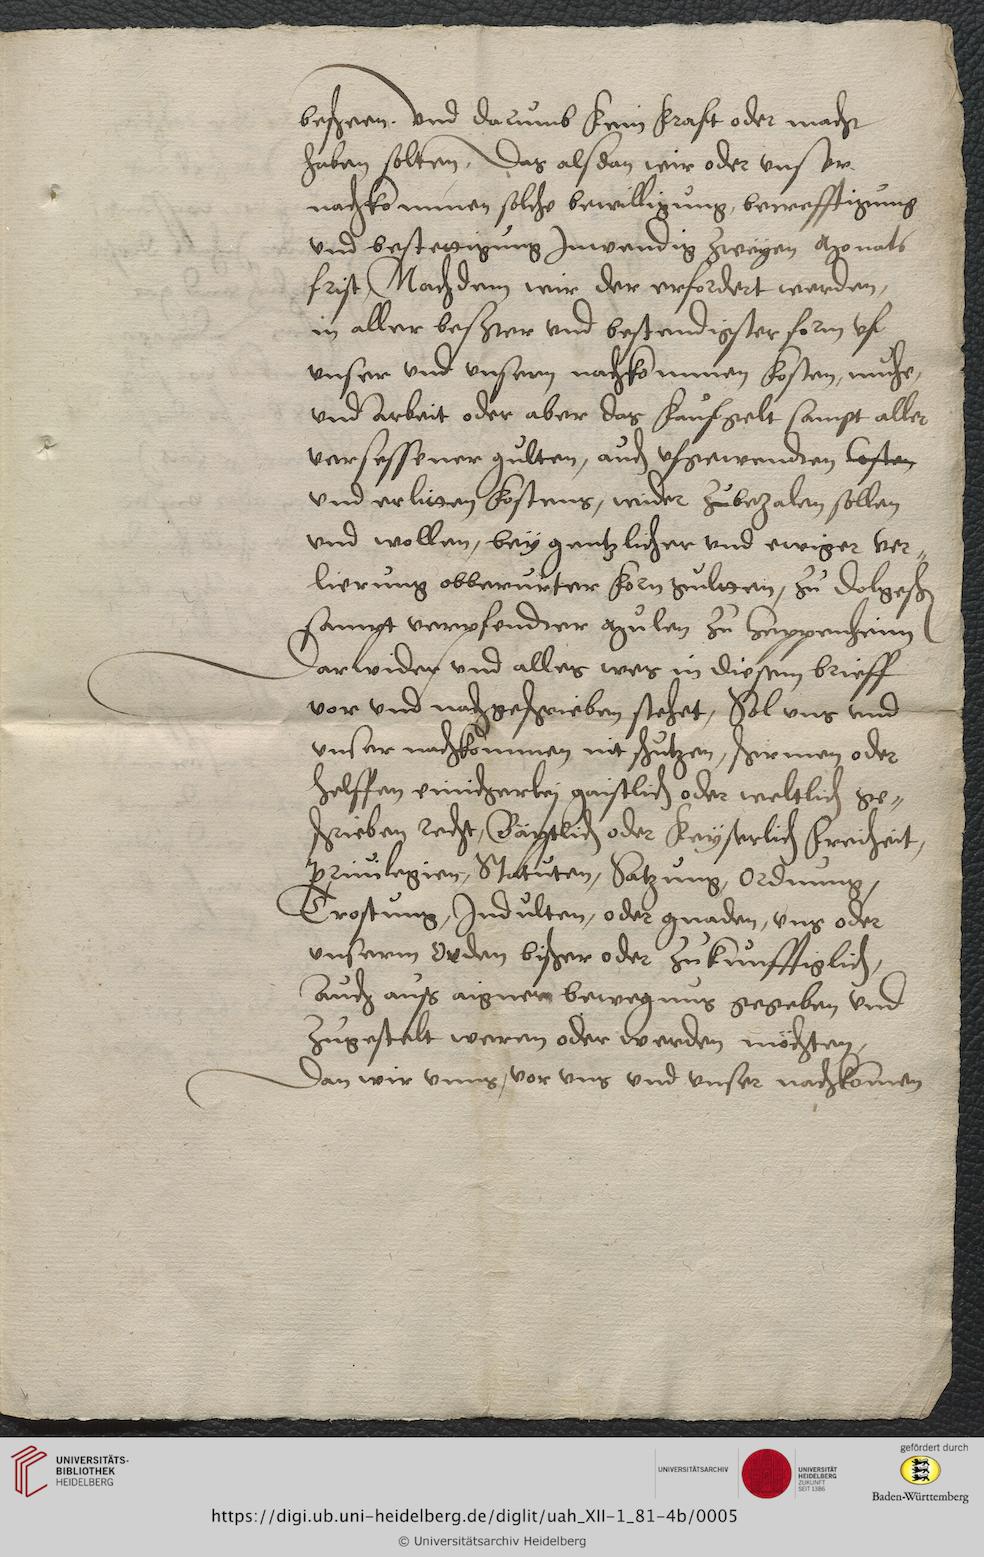 bescheen. Und darumb kein krafft oder macht
haben solten. Das alsdan wir oder unser
nachkommen solche bewilligung, bekrefftigung
und bestettigung Inwendig zweyen Monats
frist, Nachdem wir der erfordert werden,
in aller bester und bestendigster form uf
unser und unsern nachkommen kosten, muhe,
und Arbeit oder aber das kaufgelt sampt aller
versessener gulten, auch ufgewendten Costen
und erlitten kostens, wider zubezalen sollen
und wollen, bey gentzlicher und ewiger ver-
lierung obberurter korn gulten, zu Dolgesh
sampt verpfendter Mulen zu Heppenheim
Darwider und alles wes in diesem brieff
vor und nachgeschrieben stehet, Sol uns und
unser nachkommen nit schutzen, schirmen oder
helffen einicherley gaistlich oder weltlich ge-
schrieben recht, Bäpstlich oder Keyserlich freiheit,
Privilegien, Statuten, Satzung, Ordnung,
Trostung, Indulten, oder gnaden, uns oder
unserm Orden bisher oder zukunfftiglich,
Auch auss aigner bewegnus gegeben und
zugestelt weren oder werden möchten,
Dan wir unns, vor uns und unser nachkomen
UNIVERSITÄTS-
BIBLIOTHEK
HEIDELBERG
UNIVERSITÄTSARCHIV
UNIVERSITÄT
HEIDELBERG
ZUKUNFT
SEIT 1386
gefördert durch
Baden-Württemberg
https://digi.ub.uni-heidelberg.de/diglit/uah_XII-1_81-4b/0005
© Universitätsarchiv Heidelberg